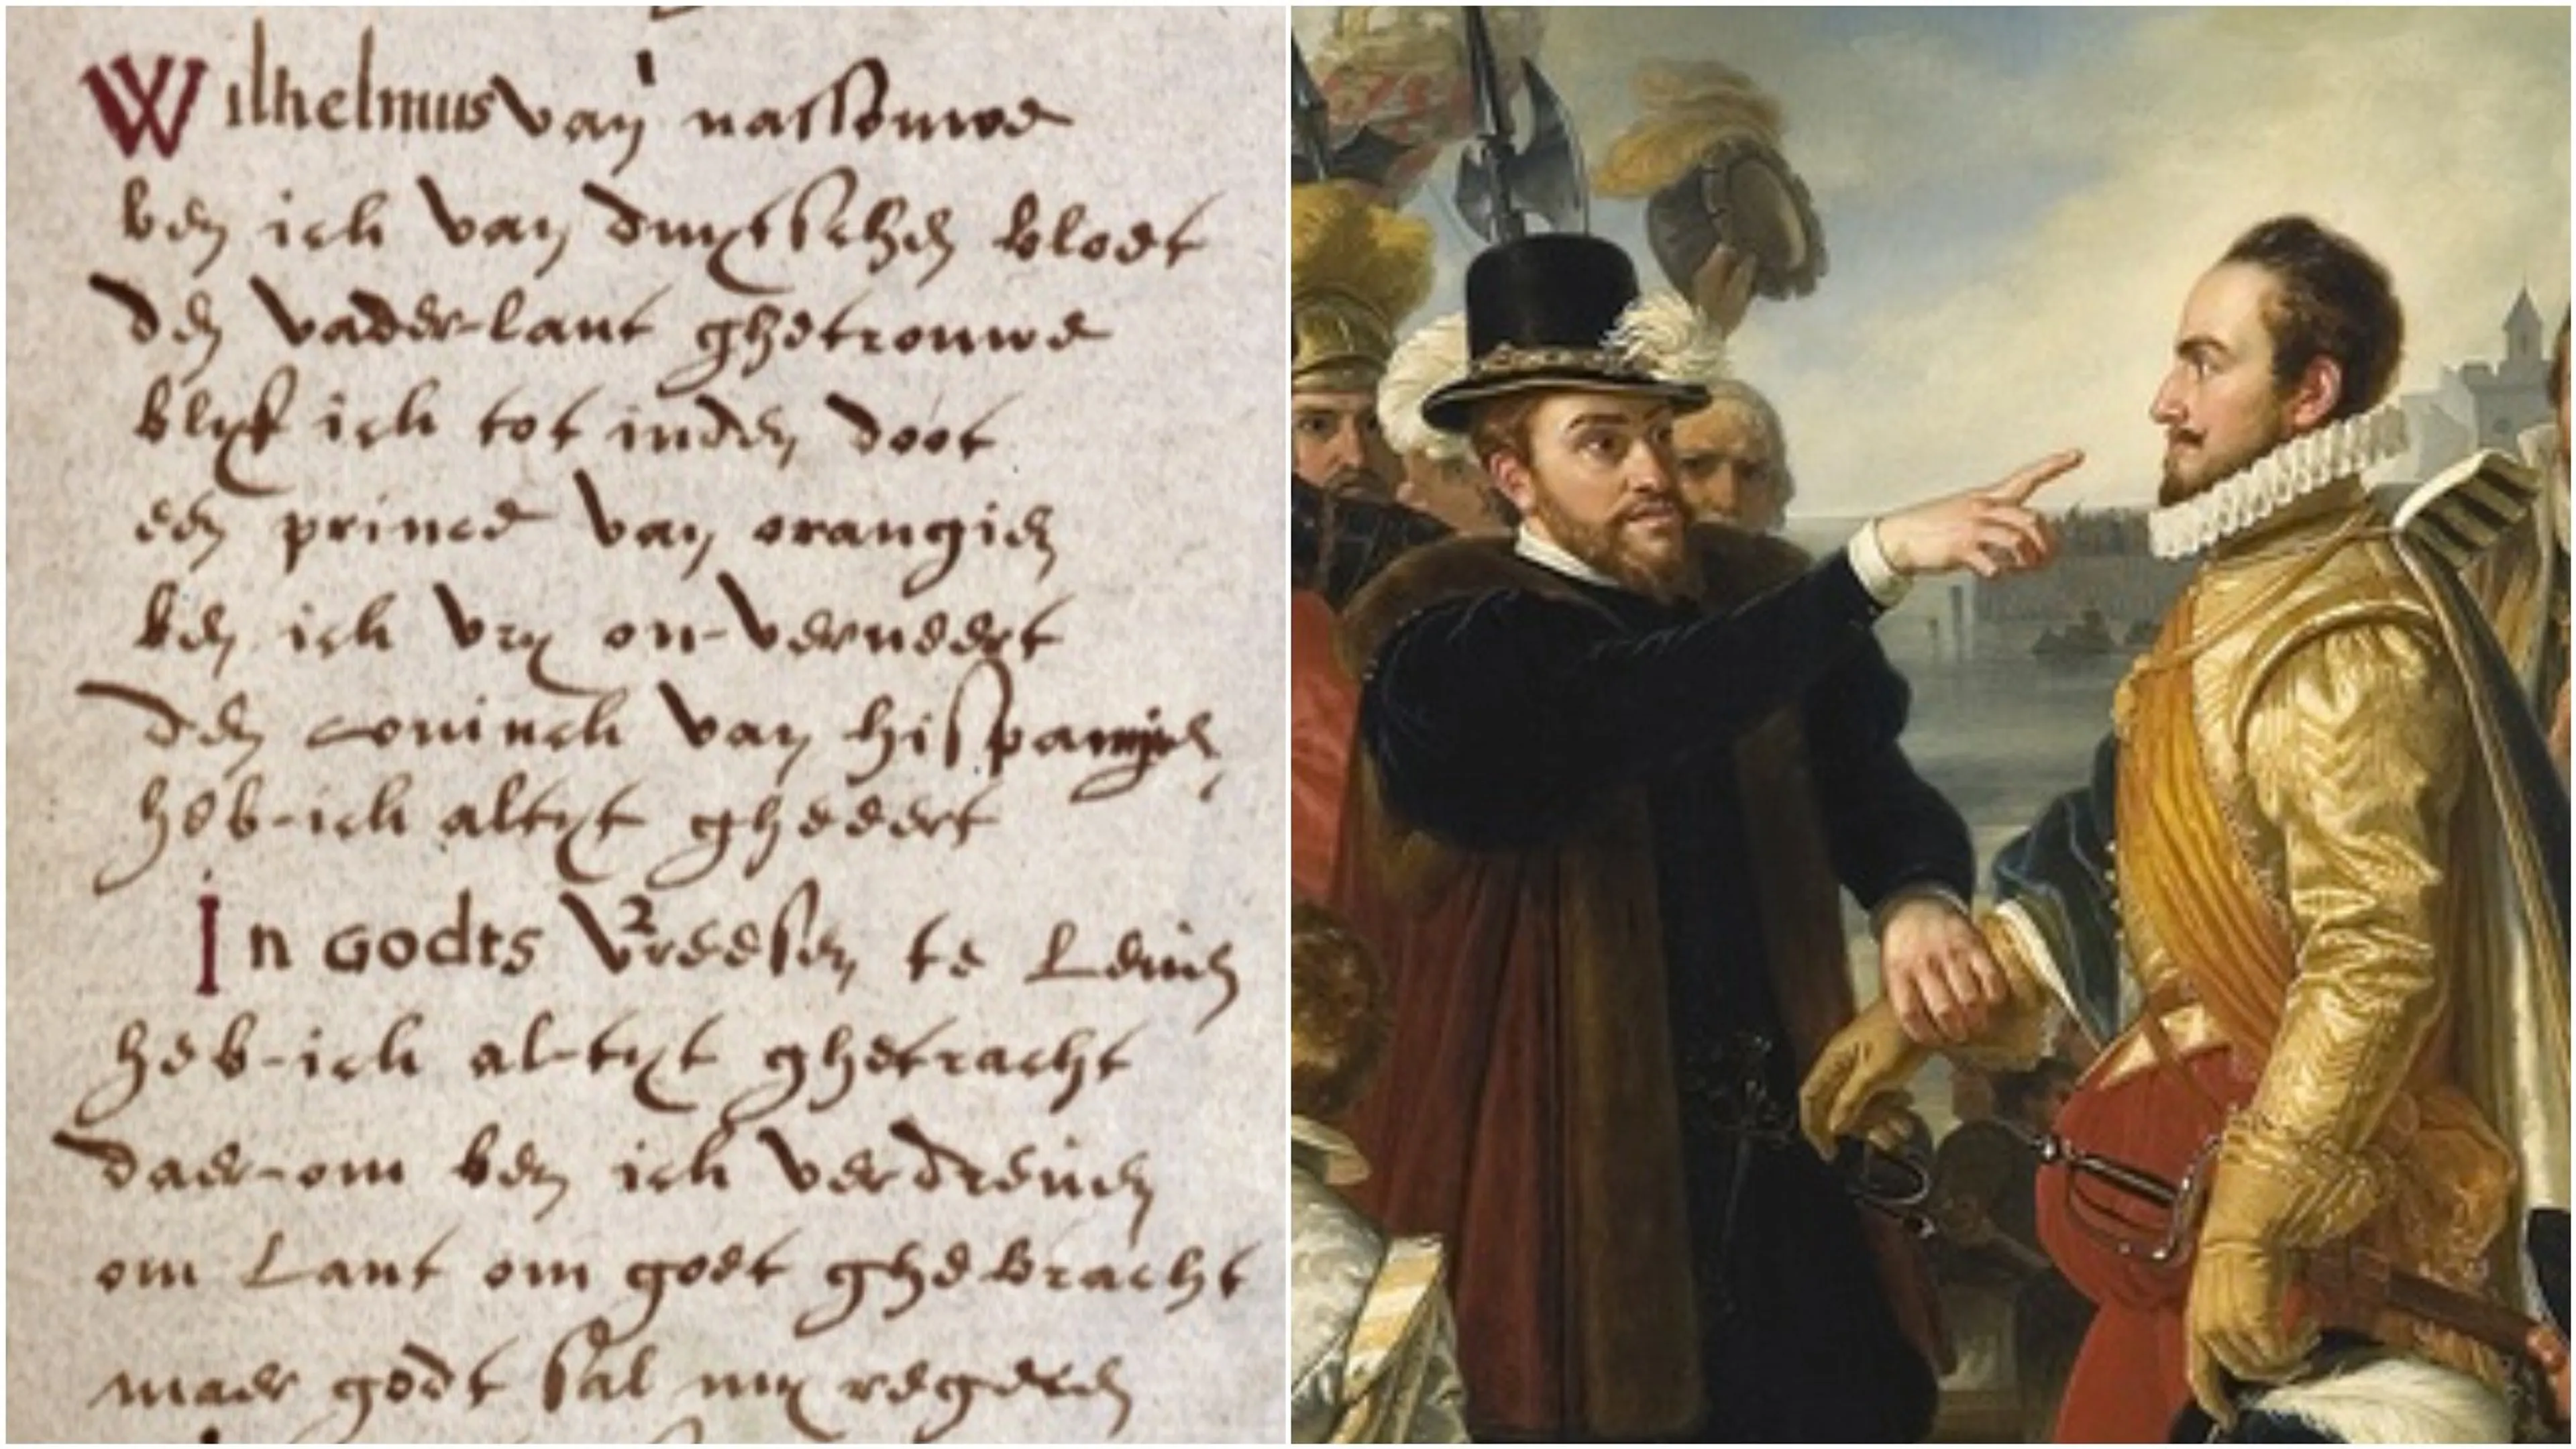 Wilhelmus van nassouwe
ben ich van duytschen bloet
den vader-lant ghetrouwe
blyf ich tot inden doot
een prince van orangien
ben ich vry on-verveert
den coninch van hispangien
heb-ich altyt gheeert
In Godts vreesen te Leuen
heb-ich al-tyt ghetracht
daer-om ben ich verdreuen
om Lant om goet ghebracht
maer godt sal my regeren